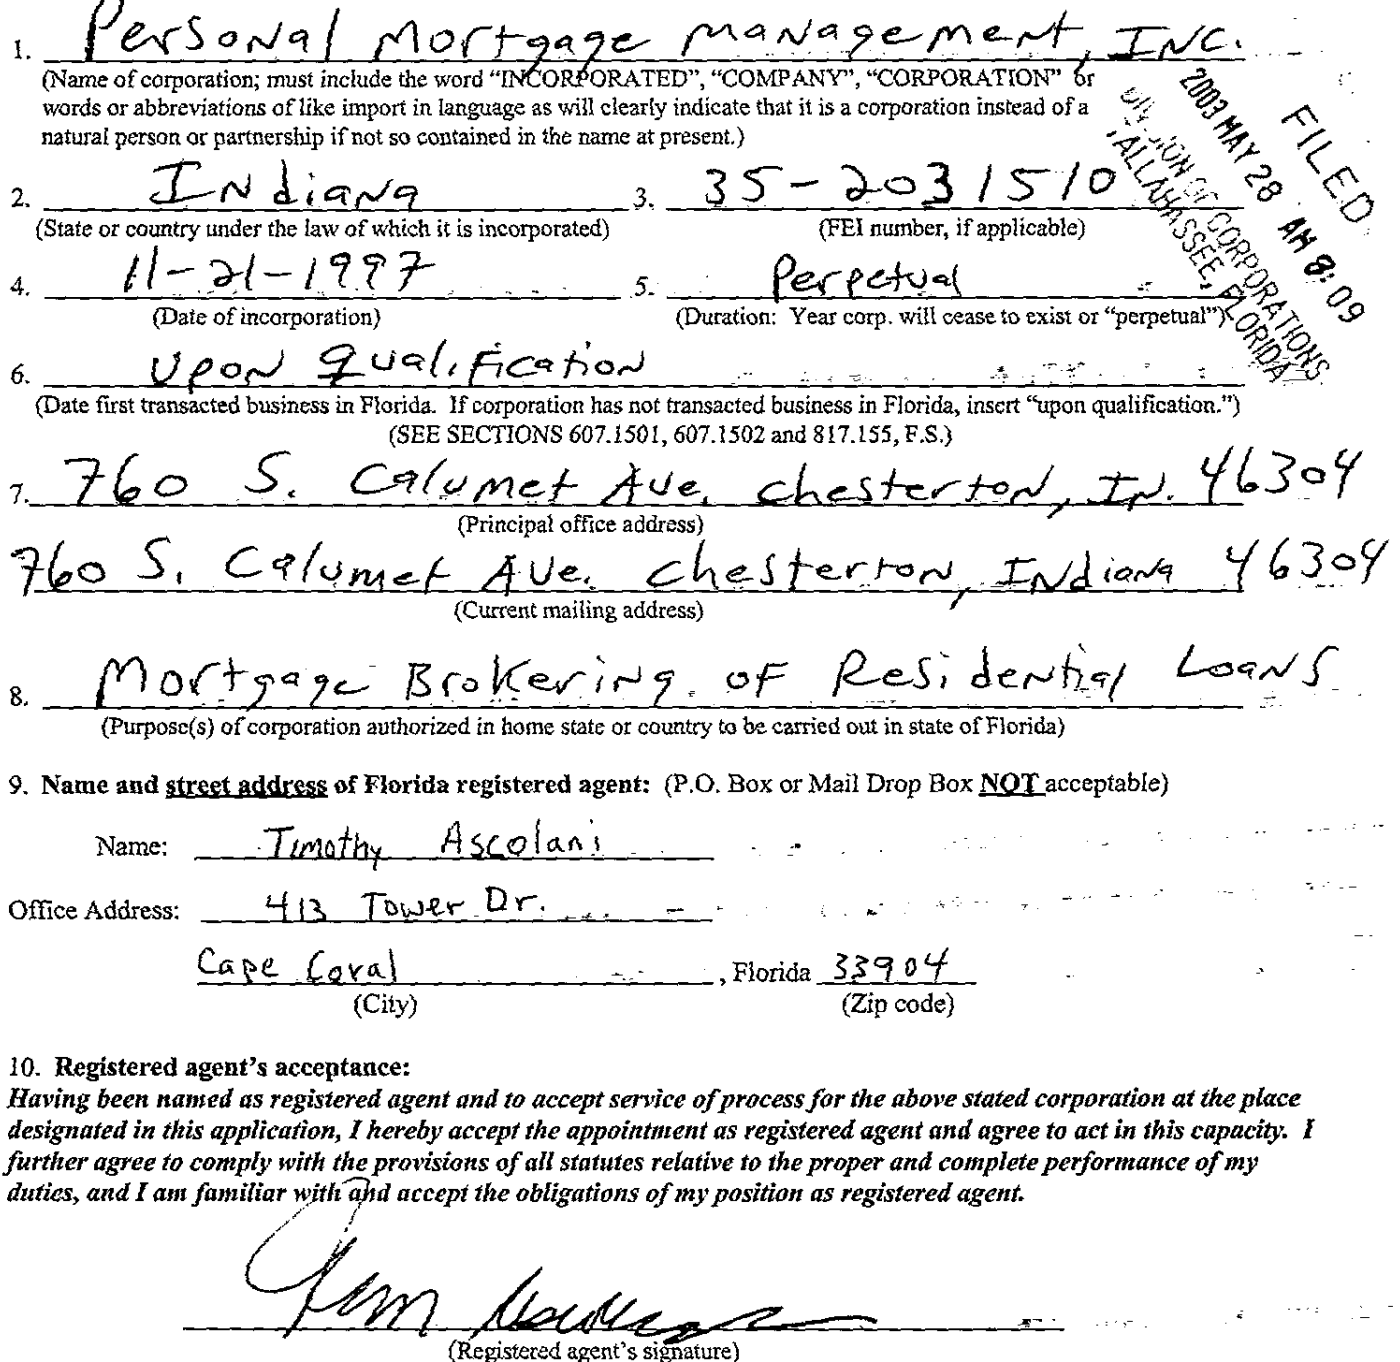 1. Personal Mortgage Management, INC.
(Name of corporation; must include the word “INCORPORATED”, “COMPANY”, “CORPORATION” or
words or abbreviations of like import in language as will clearly indicate that it is a corporation instead of a
natural person or partnership if not so contained in the name at present.)
FILED
2003 MAY 28 AM 8:09
OF CORPORATIONS
TALLAHASSEE, FLORIDA
2. Indiana 3. 35-2031510
(State or country under the law of which it is incorporated) (FEI number, if applicable)
4. 11-21-1997 5. Perpetual
(Date of incorporation) (Duration: Year corp. will cease to exist or “perpetual”)
6. Upon Qualification
(Date first transacted business in Florida. If corporation has not transacted business in Florida, insert “upon qualification.”)
(SEE SECTIONS 607.1501, 607.1502 and 817.155, F.S.)
7. 760 S. Calumet Ave. Chesterton, IN. 46304
(Principal office address)
760 S. Calumet Ave. Chesterton, Indiana 46304
(Current mailing address)
8. Mortgage Brokering of Residential Loans
(Purpose(s) of corporation authorized in home state or country to be carried out in state of Florida)
9. Name and street address of Florida registered agent: (P.O. Box or Mail Drop Box NOT acceptable)
Name: Timothy Ascolani
Office Address: 413 Tower Dr.
Cape Coral, Florida 33904
(City) (Zip code)
10. Registered agent's acceptance:
Having been named as registered agent and to accept service of process for the above stated corporation at the place
designated in this application, I hereby accept the appointment as registered agent and agree to act in this capacity. I
further agree to comply with the provisions of all statutes relative to the proper and complete performance of my
duties, and I am familiar with and accept the obligations of my position as registered agent.
(Registered agent's signature)